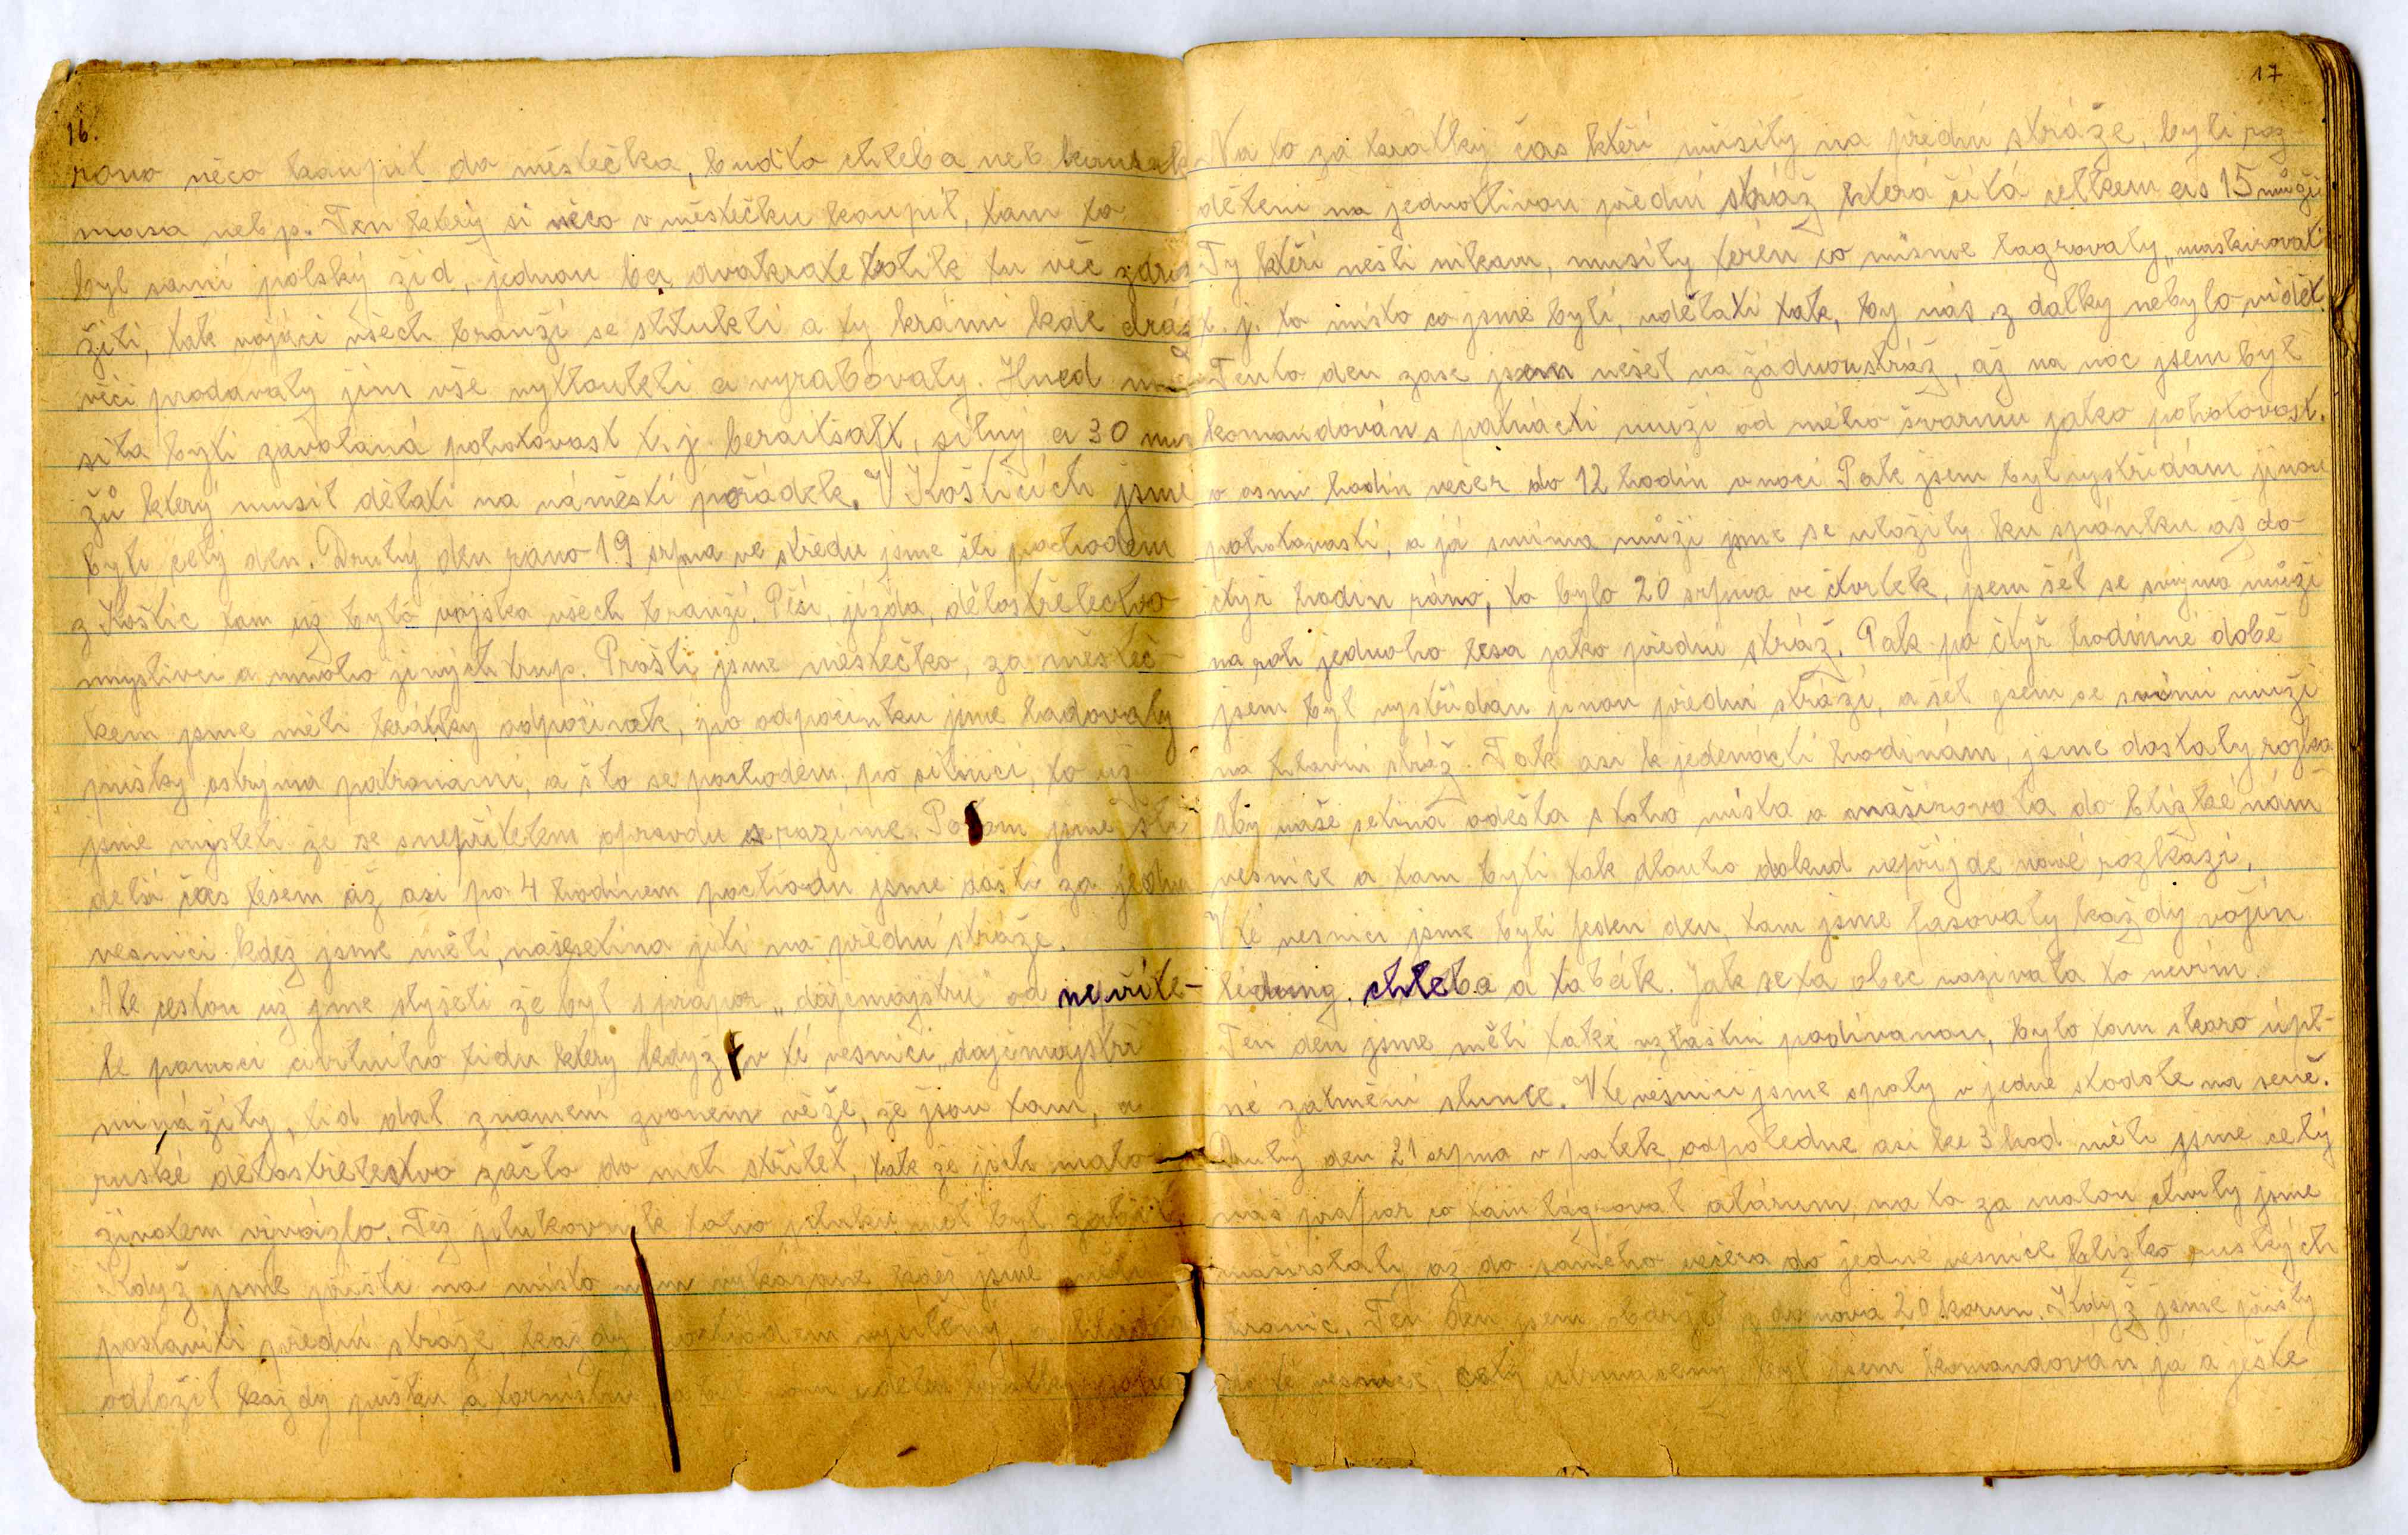 16.
rano něco kaupit do městečka, buďto chleba neb kousek
masa neb p. Ten který si něco v městečku kaupil, tam to
byl samí polský žid, jednou ba dvakrate tolik tu věc zdra-
žili, tak vojáci všech branží se stlukli a ty krámi kde dráž
věci prodavaly jim vše vytloukli a vyrabovaly. Hned mu-
sila byti zavolaná pohotovost t. j. beraitšaft, silný a 30 mu-
žů který musil dělati na náměstí pořádek. V Košticích jsme
byli celý den. Druhý den rano 19 srpna ve středu jsme šli pochodem
z Koštic tam už bylo vojska všech branží. Pěší, jizda, dělostřelectvo
myslivci a mnoho jiných trup. Prošli jsme městečko, za městeč-
kem jsme měli krátky odpočinek, po odpočinku jsme ladovaly
pušky ostrýma patronami, a šlo se pochodem po silnici, to už
jsme mysleli že se snepřítelem opravdu srazíme. Potom jsme šli
delší čas lesem až asi po 4 hodinem pochodu jsme došli za jednu
vesnici kdež jsme měli, našesetina jíti na předni stráže.
Ale cestou už jsme slyšeli že byl prapor „dajčmajstrů" od nepříte-
le pomoci civilního lidu který když v té vesnici „dajčmajstři
minážily, lid dal znamení zvonem věže, že jsou tam, a
ruské dělostřelectvo začlo do nich střílet, tak že jich malo
životem vivázlo. Též plukovník toho pluku měl byt zabit.
Když jsme přišli na místo nam vykázané kdež jsme měli
postaviti předni stráže, každý pochodem vysílený,
odložil každy pušku a tornistru
17
Na to za kratky čas kteří músily na předni stráže, byli roz-
děleni na jednotlivou předni stráž která čítá celkem as 15 můži
Ty kteří nešli nikam, musily terén co mísme lagrovaly „maskirovati
t. j. to misto co jsme byli, udělati tak, by nás z dálky nebylo vidět.
Tento den zase jsem nešel na žádnoustráž, až na noc jsem byl
komandován s patnácti muži od mého švarmu jako pohotovost.
o osmi hodin večer do 12 hodin v noci Pak jsem byl vystřídám jinou
pohotovostí, a já smíma můži jsme se uložily ku spánku až do
čtyř hodin ráno, to bylo 20 srpna ve čtvrtek, jsem šel se svojma můži
na roh jednoho lesa jako předni stráž. Pak po čtyř hodinné době
jsem byl vystřídán jinou předni stráží, a šel jsem se svími muži
na hlavni stráž. Tak asi k jedenácti hodinám, jsme dostaly rozkaz
aby naše setina odešla s toho mista a maširovala do blizké nám
vesnice a tam byli tak dlouho dokud nepřijde nové rozkázi.
V té vesnici jsme byli jeden den, tam jsme fasovaly každý vojín
lédung, chleba a tabák. Jak se ta obec nazivala to nevím.
Ten den jsme měli také vzlaštni podívanou, bylo tam skoro úpl-
né zatmění slunce. Vte vesnici jsme spaly v jedne stodole na seně.
Druhý den 21 srpna v patek, odpoledne asi ke 3 hod měli jsme celý
náš prapor co tam lágroval alárum, na to za malou chvily jsme
maširovaly až do samého večera do jedné vesnice blízko ruských
hranic. Ten den jsem obdržel z domova 20 korun. Když jsme přišly
do té vesnice, celý utmacený byl jsem komandován, já a ještě